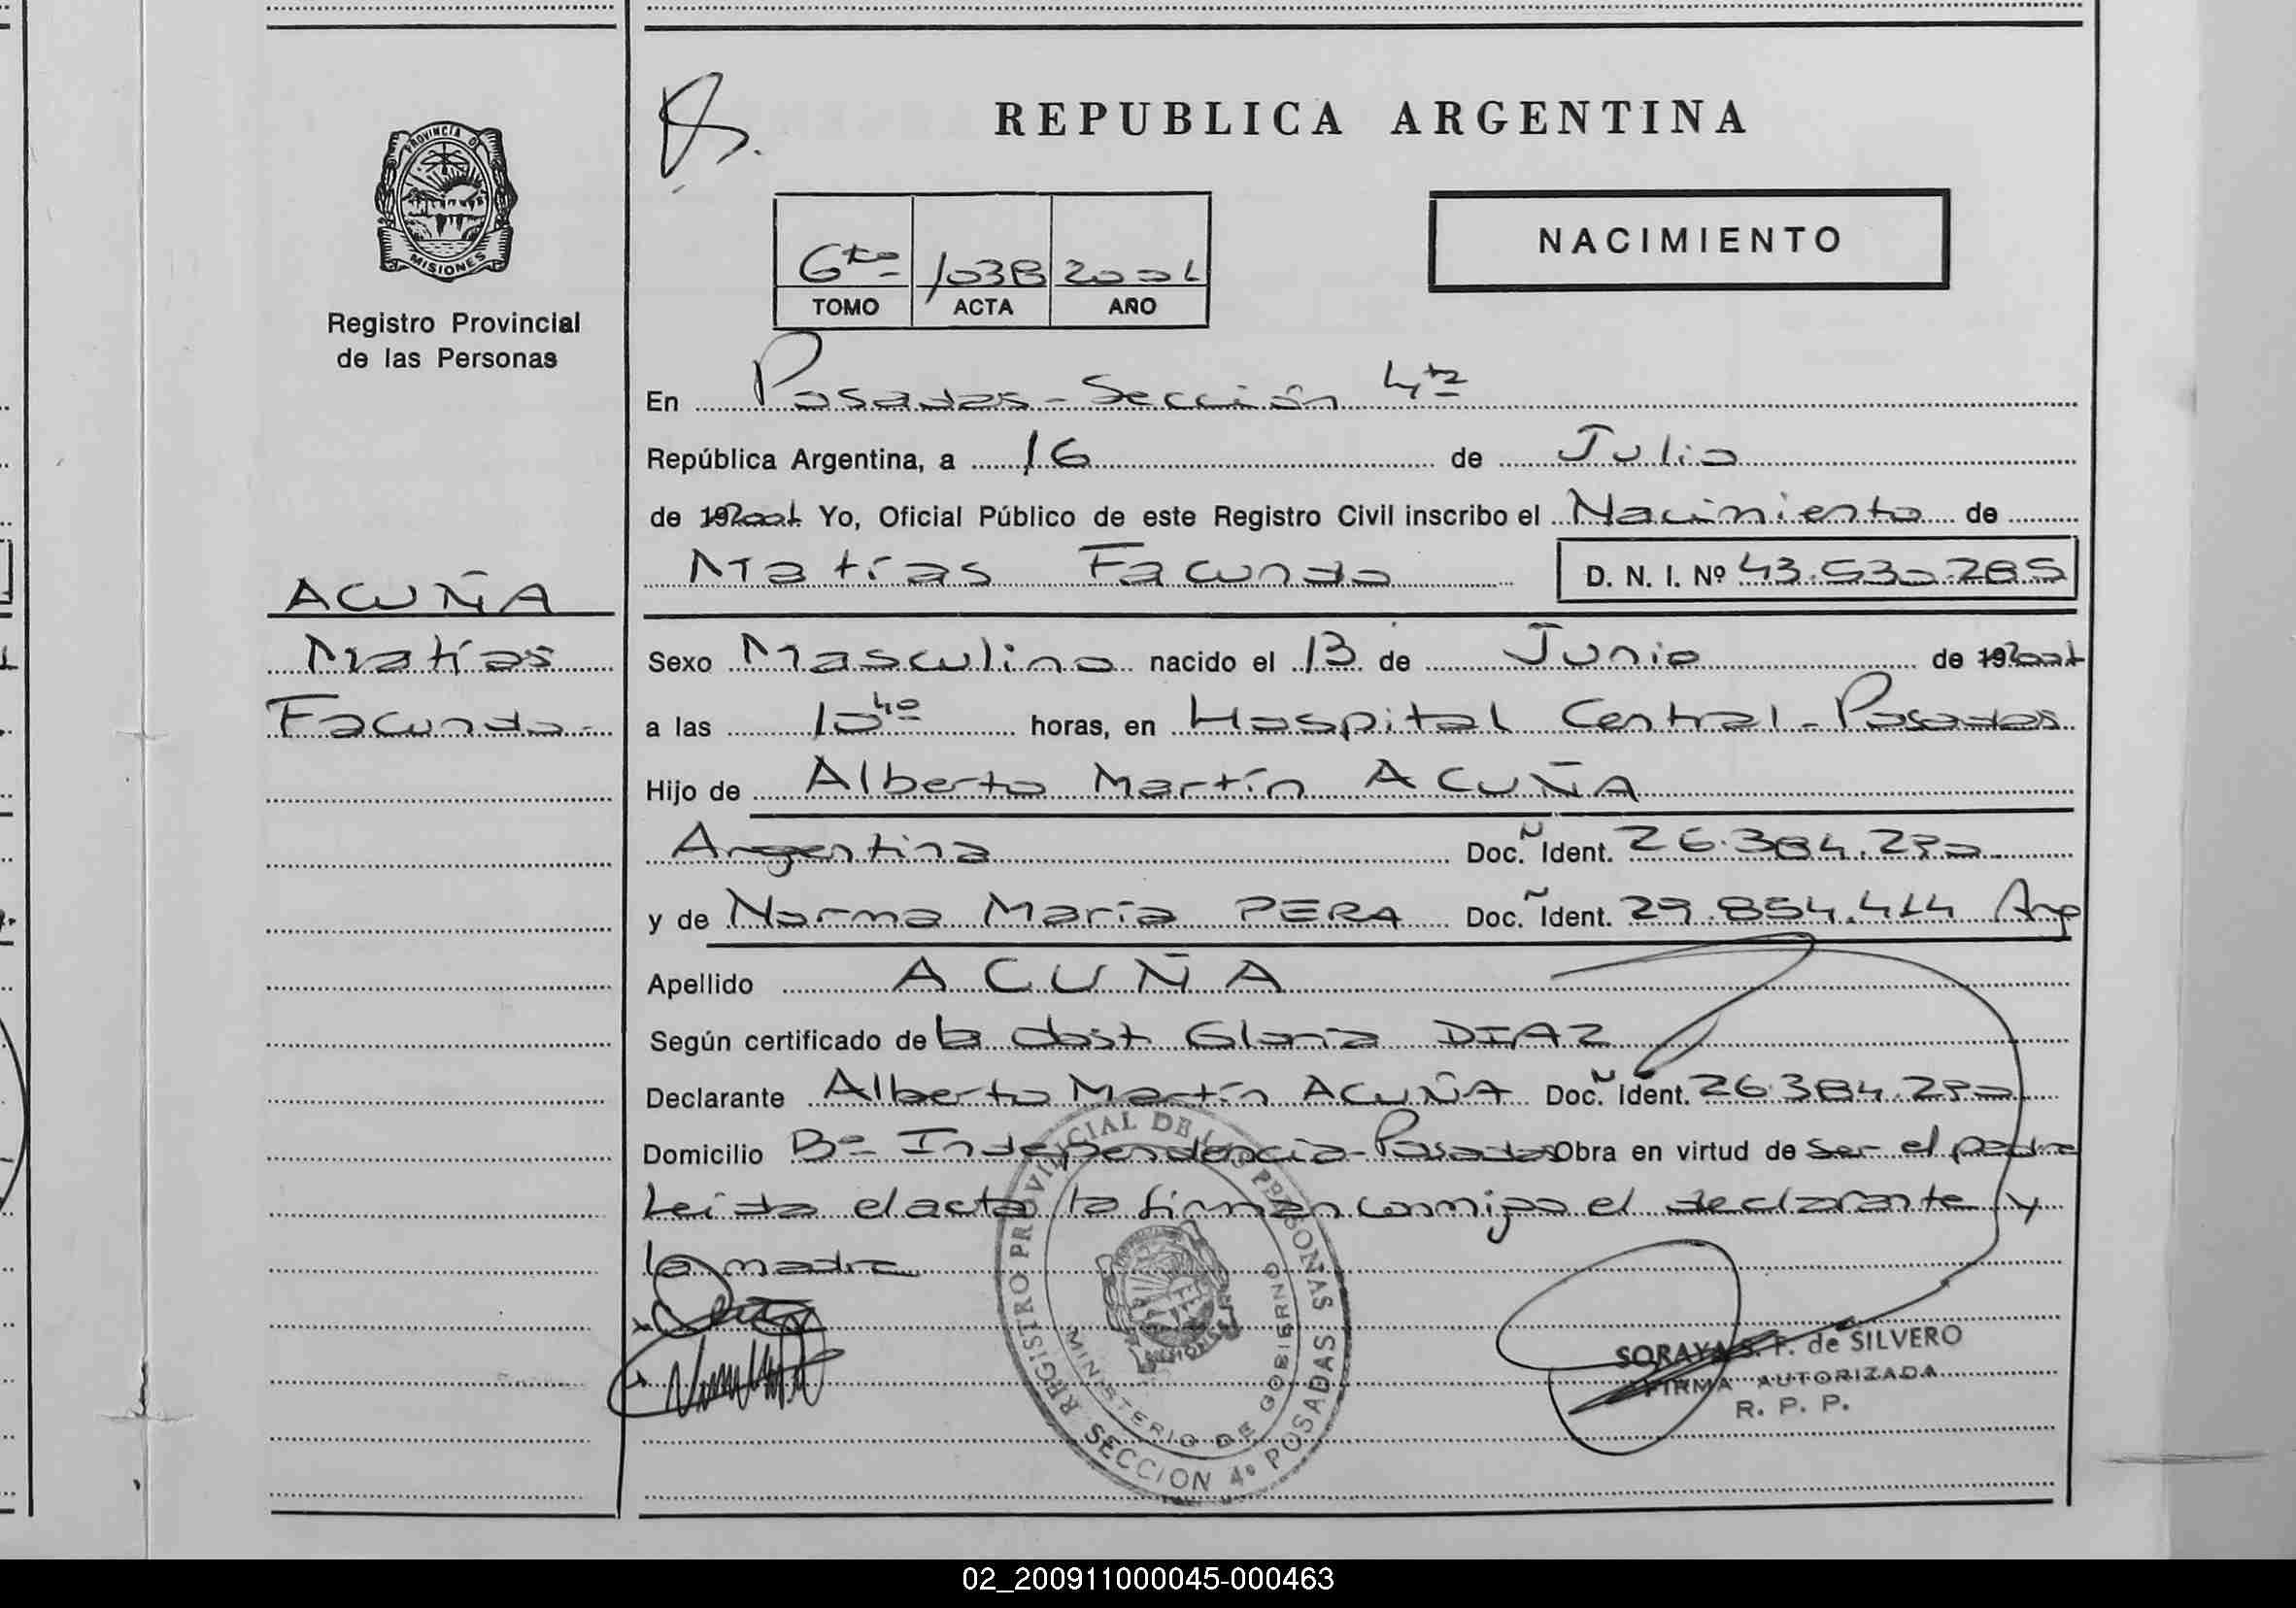 REPUBLICA ARGENTINA
PROVINCIA DE
MISIONES
Registro Provincial
de las Personas
NACIMIENTO
6to 1038 2001
TOMO ACTA AÑO
En Posadas - Sección 4ta
República Argentina, a 16 de Julio
de 192001 Yo, Oficial Público de este Registro Civil inscribo el Nacimiento de
Matías Facundo D. N. I. Nº 43.530.285
ACUÑA
Matías
Facundo-
Sexo Masculino nacido el 13 de Junio de 192001
a las 10 40 horas, en Hospital Central - Posadas
Hijo de Alberto Martín ACUÑA
Argentina Doc. Ident. 26.384.290
y de Norma María PERA Doc. Ident. 29.854.414 Arg
Apellido ACUÑA
Según certificado de la obst Gloria DIAZ
Declarante Alberto Martín ACUÑA Doc. Ident. 26.384.290
Domicilio Bº Independencia - Posadas Obra en virtud de ser el padre
Leida el acta la firman conmigo el declarante y
la madre
REGISTRO PROVINCIAL DE LAS PERSONAS
MINISTERIO DE GOBIERNO
SECCION 4º POSADAS
SORAYA S. F. de SILVERO
FIRMA AUTORIZADA
R. P. P.
02_200911000045-000463